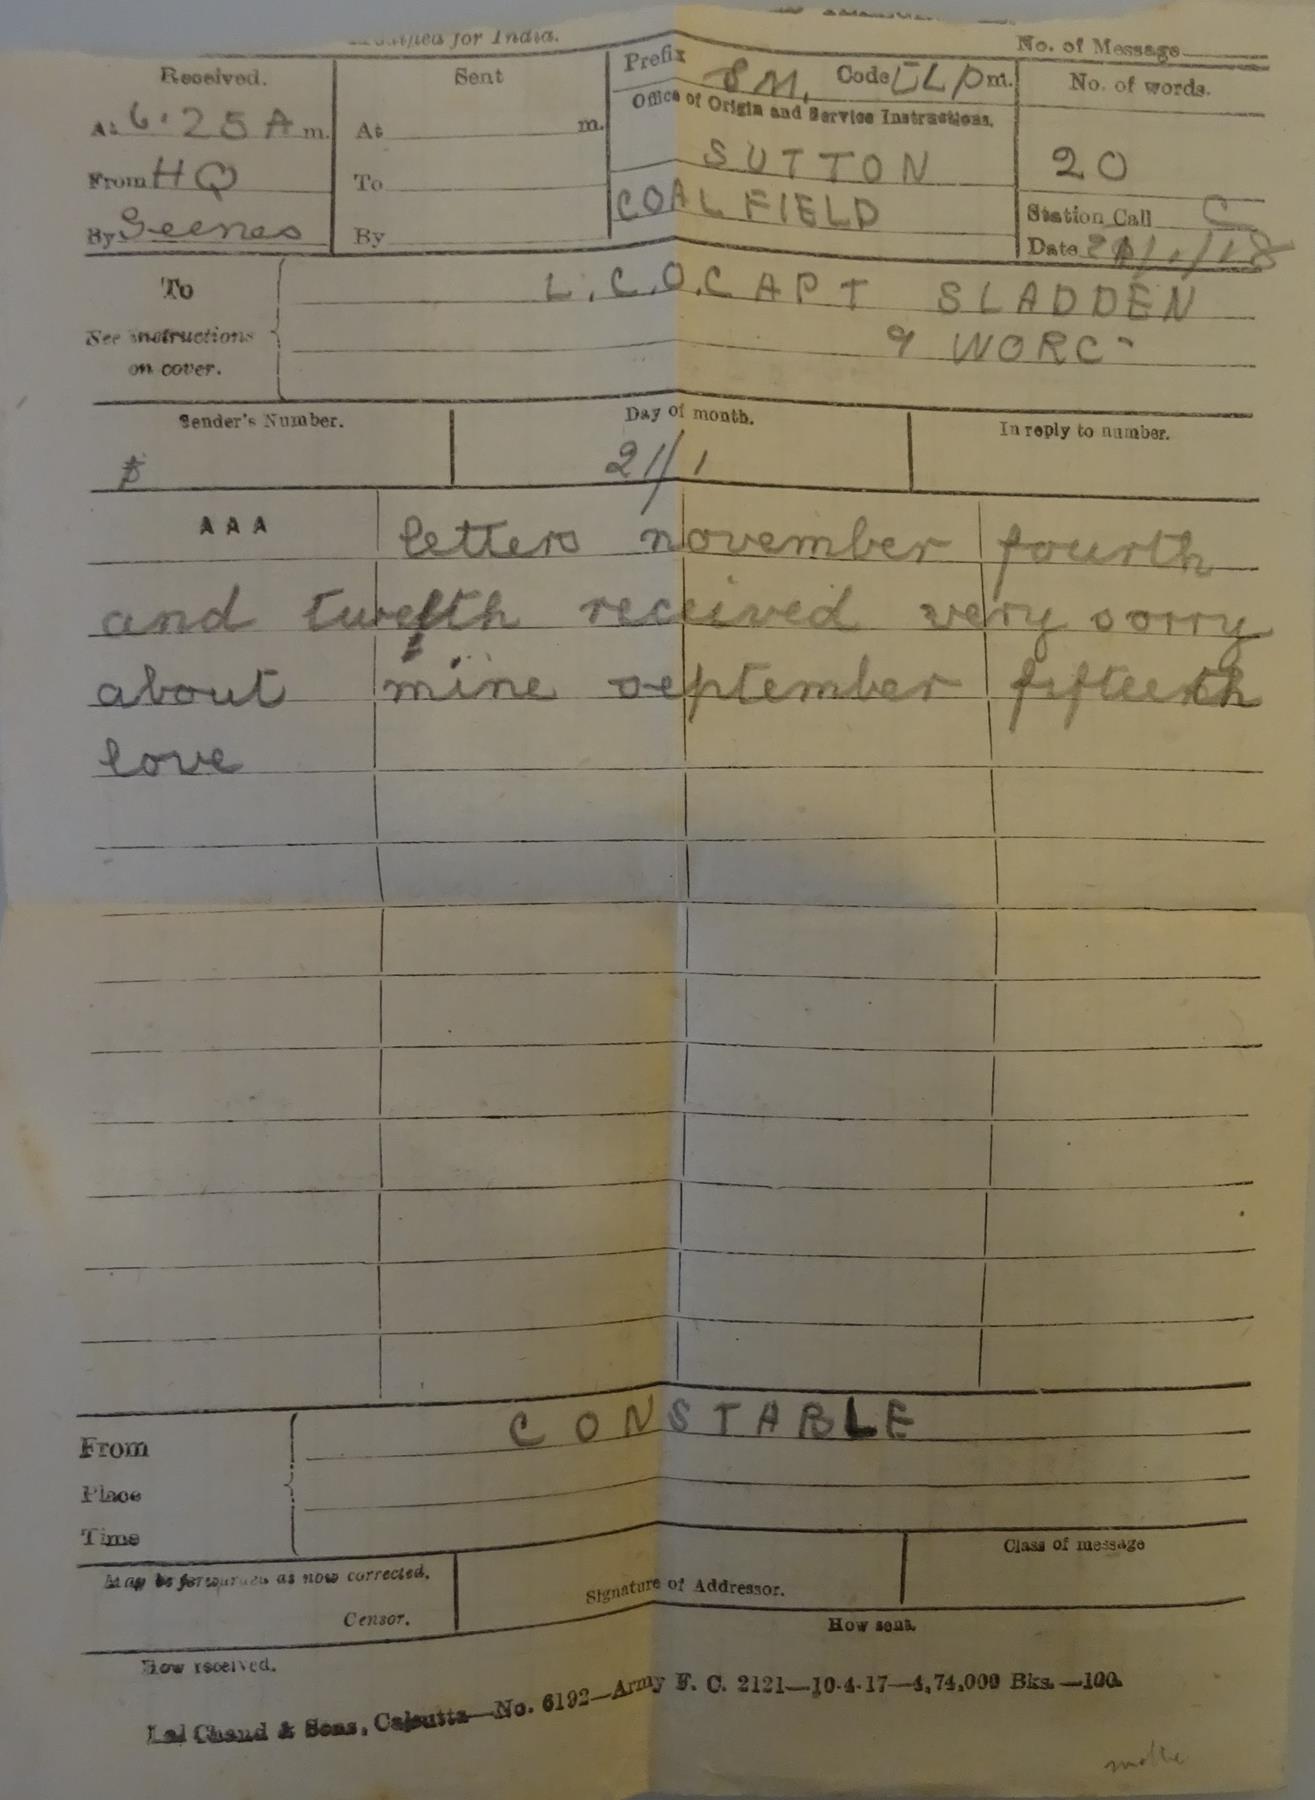 for India.
No. of Message
Received.
Sent
Prefix SM. Code m.
No. of words.
At 6.25 A m.
At m.
Office of Origin and Service Instructions.
From HQ
To
SUTTON
20
By
By
COALFIELD
Station Call C
Date 21/1/18
To
L.C.O. CAPT SLADDEN
See instructions
on cover.
9 WORC
Sender's Number.
Day of month.
In reply to number.
21/1
AAA letters november fourth
and twelfth received very sorry
about mine september fifteenth
love
From
CONSTABLE
Place
Time
May be forwarded as now corrected.
Class of message
Censor.
Signature of Addressor.
How sent.
How received.
Lal Chand & Sons, Calcutta—No. 6192—Army F. C. 2121—10-4-17—4,74,000 Bks.—100.